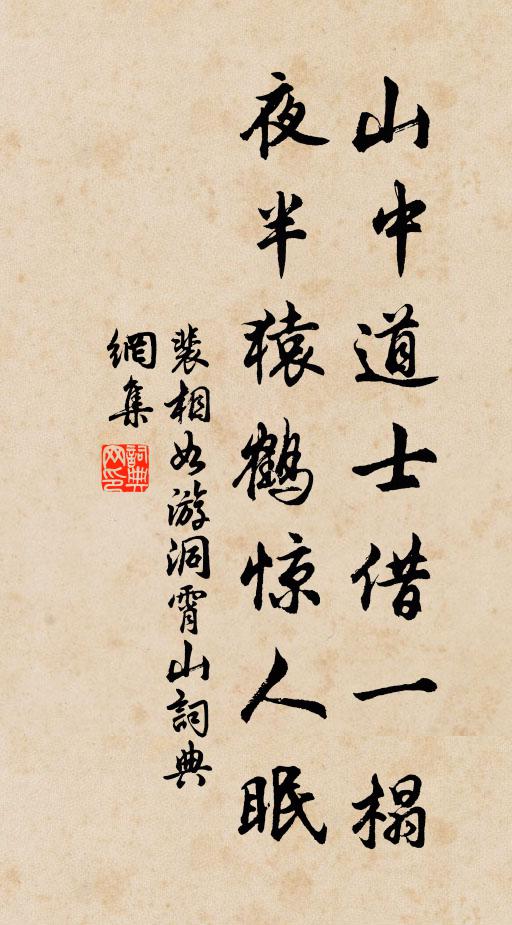 山中道士借一榻
夜半猿鹤惊人眠
裴相如游洞霄山詞典
網集
詞典
网印